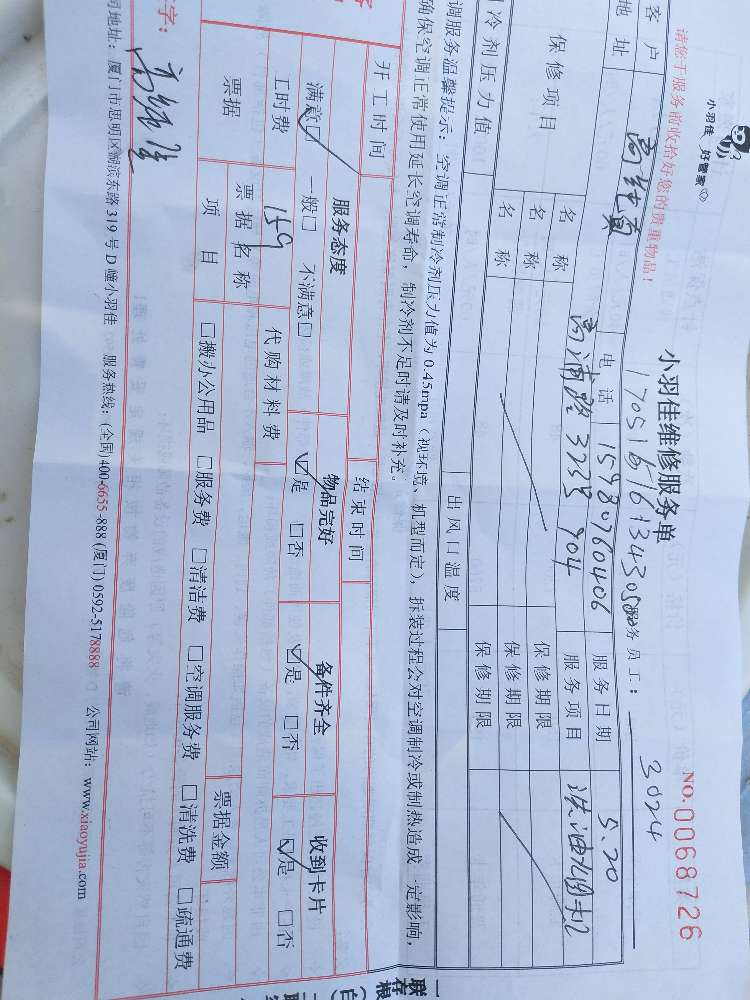 小羽佳 好管家
小羽佳维修服务单
NO.0068726
请您于服务前收拾好您的贵重物品!
服务员工: 3024
客户
电话 15980760406
服务日期 5.20
地址 904
服务项目 洗油烟机
保修项目
名称
保修期限
名称
保修期限
名称
保修期限
冷剂压力值
出风口温度
调服务温馨提示: 空调正常制冷剂压力值为0.45mpa(视环境、机型而定), 拆装过程会对空调制冷或制热造成一定影响,
确保空调正常使用延长空调寿命, 制冷剂不足时请及时补充。
开工时间
结束时间
服务态度
物品完好
备件齐全
收到卡片
满意☑ 一般□ 不满意□
☑是 □否
☑是 □否
☑是 □否
工时费 159
代购材料费
票据
票据名称
票据金额
项目
□搬办公用品 □服务费 □清洁费 □空调服务费 □清洗费 □疏通费
字:
司地址: 厦门市思明区湖滨东路319号D幢小羽佳 服务热线: (全国)400-6655-888 (厦门) 0592-5178888 公司网站: www.xiaoyujia.com